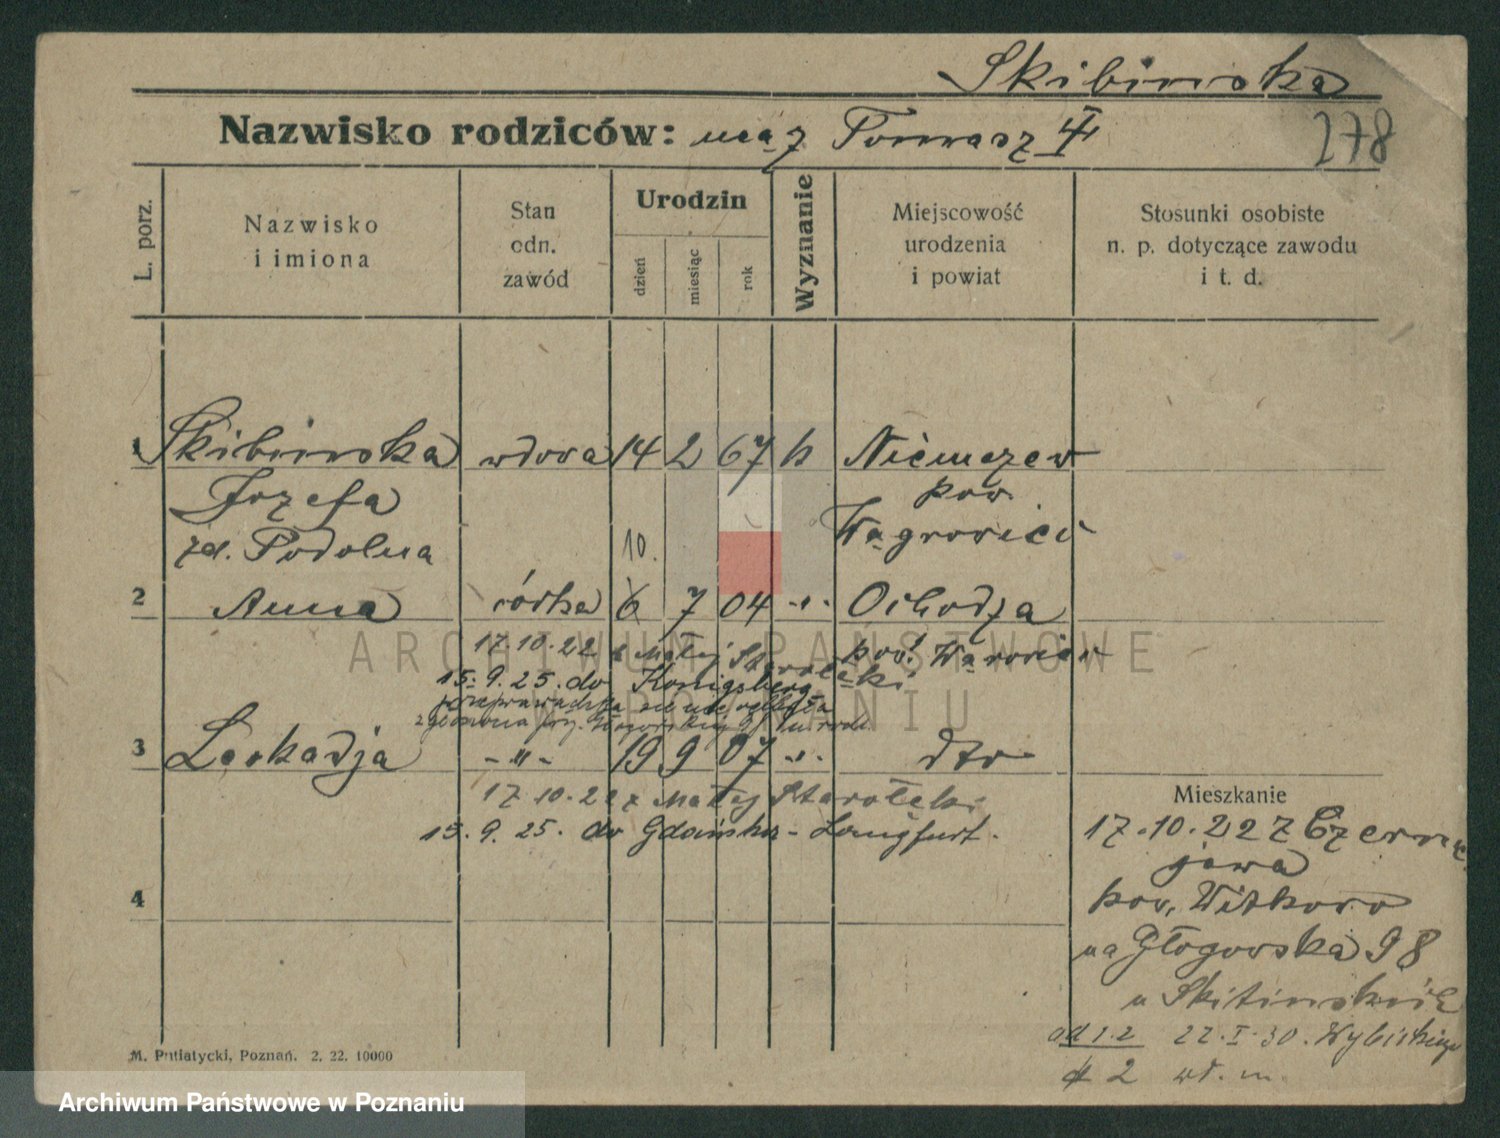 Skibinska
Nazwisko rodziców: mąż Tomasz
278
L. porz.
Nazwisko
i imiona
Stan
odn.
zawód
Urodzin
dzień
miesiąc
rok
Wyznanie
Miejscowość
urodzenia
i powiat
Stosunki osobiste
n. p. dotyczące zawodu
i t. d.
1 Skibinska wdowa 14 2 67 k Niemczew
Jozefa pow.
zd. Podolna Wągrowiec
10.
2 Anna córka 6 7 04 -"- Ochodza
17.10.22 z Małej Starołęki pow. Wągrowiec
15.9.25. do Konigsberg
3 Leokadja -"- 19 9 07 -"- dto
17.10.22 z Małej Starołęki
15.9.25. do Gdańska - Langfurt.
4
Mieszkanie
17.10.22 z Czernie
jewa
pow. Witkowo
na Głogowska 98
u Skibinskich
od 1.2 22.I.30. Wybickiego
# 2 wł. m.
M. Putiatycki, Poznań. 2. 22. 10000
ARCHIWUM PAŃSTWOWE
W POZNANIU
Archiwum Państwowe w Poznaniu